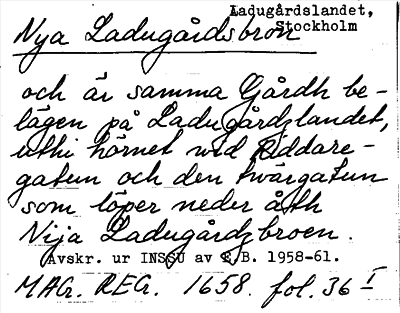 Ladugårdslandet,
Stockholm
Nya Ladugårdsbron
och är samma Gårdh be-
lägen på Ladugårdzlandet,
uthi hörnet wid Riddare-
gatun och den twärgatun
som löper neder åth
Nija Ladugårdzbroen.
Avskr. ur INSSU av R.B. 1958-61.
MAG. REG. 1658. fol. 36 I